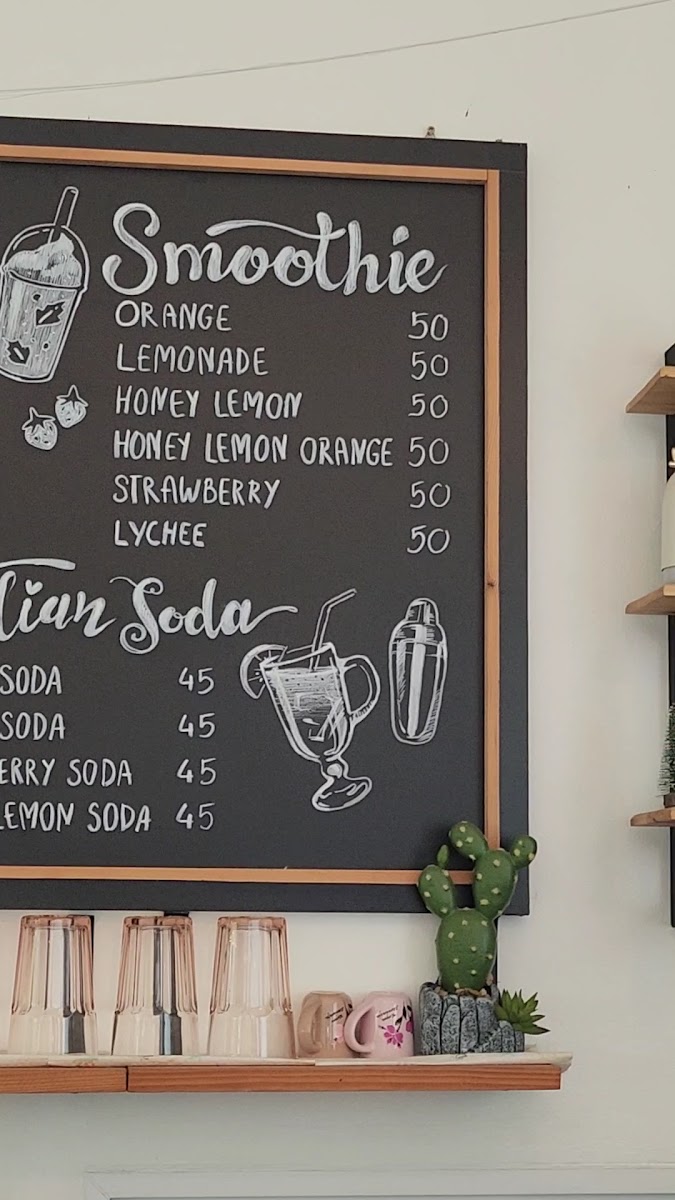 Smoothie
ORANGE 50
LEMONADE 50
HONEY LEMON 50
HONEY LEMON ORANGE 50
STRAWBERRY 50
LYCHEE 50
lian Soda
SODA 45
SODA 45
ERRY SODA 45
LEMON SODA 45